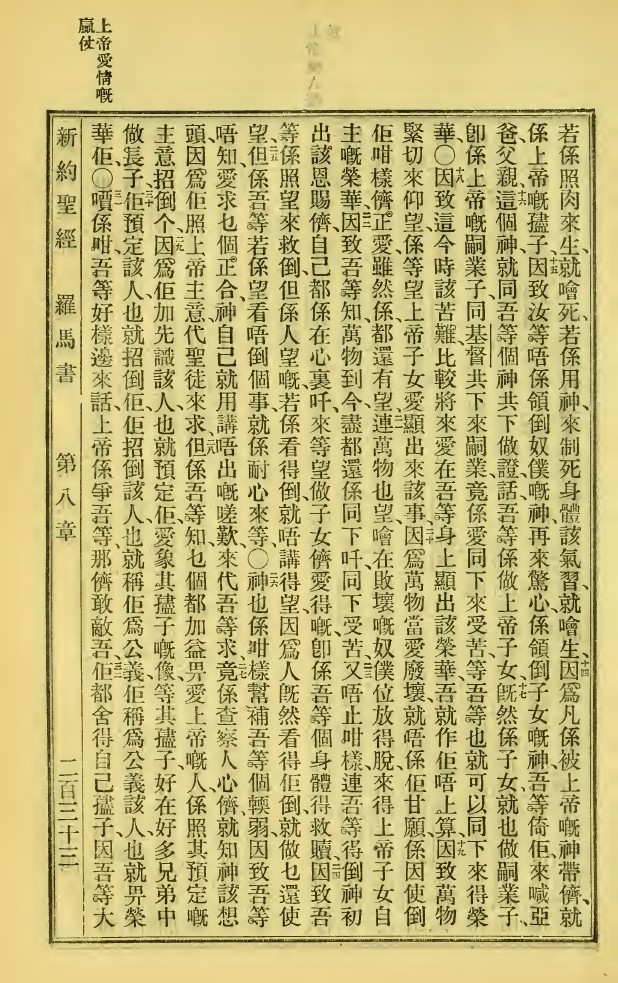 上帝愛情嘅
贏仗
若係照肉來生、就噲死、若係用神來制死身體該氣習、就噲生、十四因爲凡係被上帝嘅神帶儕、就
係上帝嘅孻子、十五因致汝等唔係領倒奴僕嘅神再來驚心、係領倒子女嘅神、吾等倚佢來喊亞
爸父親、十六這個神就同吾等個神共下做證、話吾等係做上帝子女、十七旣然係子女、就也做嗣業子、
卽係上帝嘅嗣業子、同基督共下來嗣業、竟係愛同下來受苦等吾等也就可以同下來得榮
華〇十八因致這今時該苦難、比較將來愛在吾等身上顯出該榮華、吾就作佢唔上算、十九因致萬物
緊切來仰望、係等望上帝子女愛顯出來該事、二十因爲萬物當愛廢壞、就唔係佢甘願、係因使倒
佢咁樣儕、正愛雖然係都還有望、二一連萬物也望噲在敗壞嘅奴僕位放得脫、來得上帝子女自
主嘅榮華、二二因致吾等知萬物到今盡都還係同下吁、同下受苦、二三又唔止咁樣、連吾等得倒神初
出該恩賜儕、自己都係在心裏吁、來等望做子女儕愛得嘅、卽係吾等個身體得救贖、二四因致吾
等係照望來救倒、但係人望嘅、若係看得倒、就唔講得望、因爲人旣然看得佢倒、就做乜還使
望、二五但係吾等若係望看唔倒個事、就係耐心來等〇二六神也係咁樣幫補吾等個輭弱、因致吾等
唔知愛求乜個正合、神自己就用講唔出嘅嗟歎、來代吾等求、二七竟係查察人心儕、就知神該想
頭、因爲佢照上帝主意代聖徒來求、二八但係吾等知乜個都加益畀愛上帝嘅人、係照其預定嘅
主意招倒个、二九因爲佢加先識該人、也就預定佢愛象其孻子嘅像、等其孻子、好在好多兄弟中
做長子、三十佢預定該人、也就招倒佢、佢招倒該人、也就稱佢爲公義、佢稱爲公義該人、也就畀榮
華佢〇三一嘳係咁、吾等好樣邊來話、上帝係爭吾等、那儕敢敵吾、三二佢都舍得自己孻子、因吾等大
新約聖經　羅馬書　第八章　二百三十三